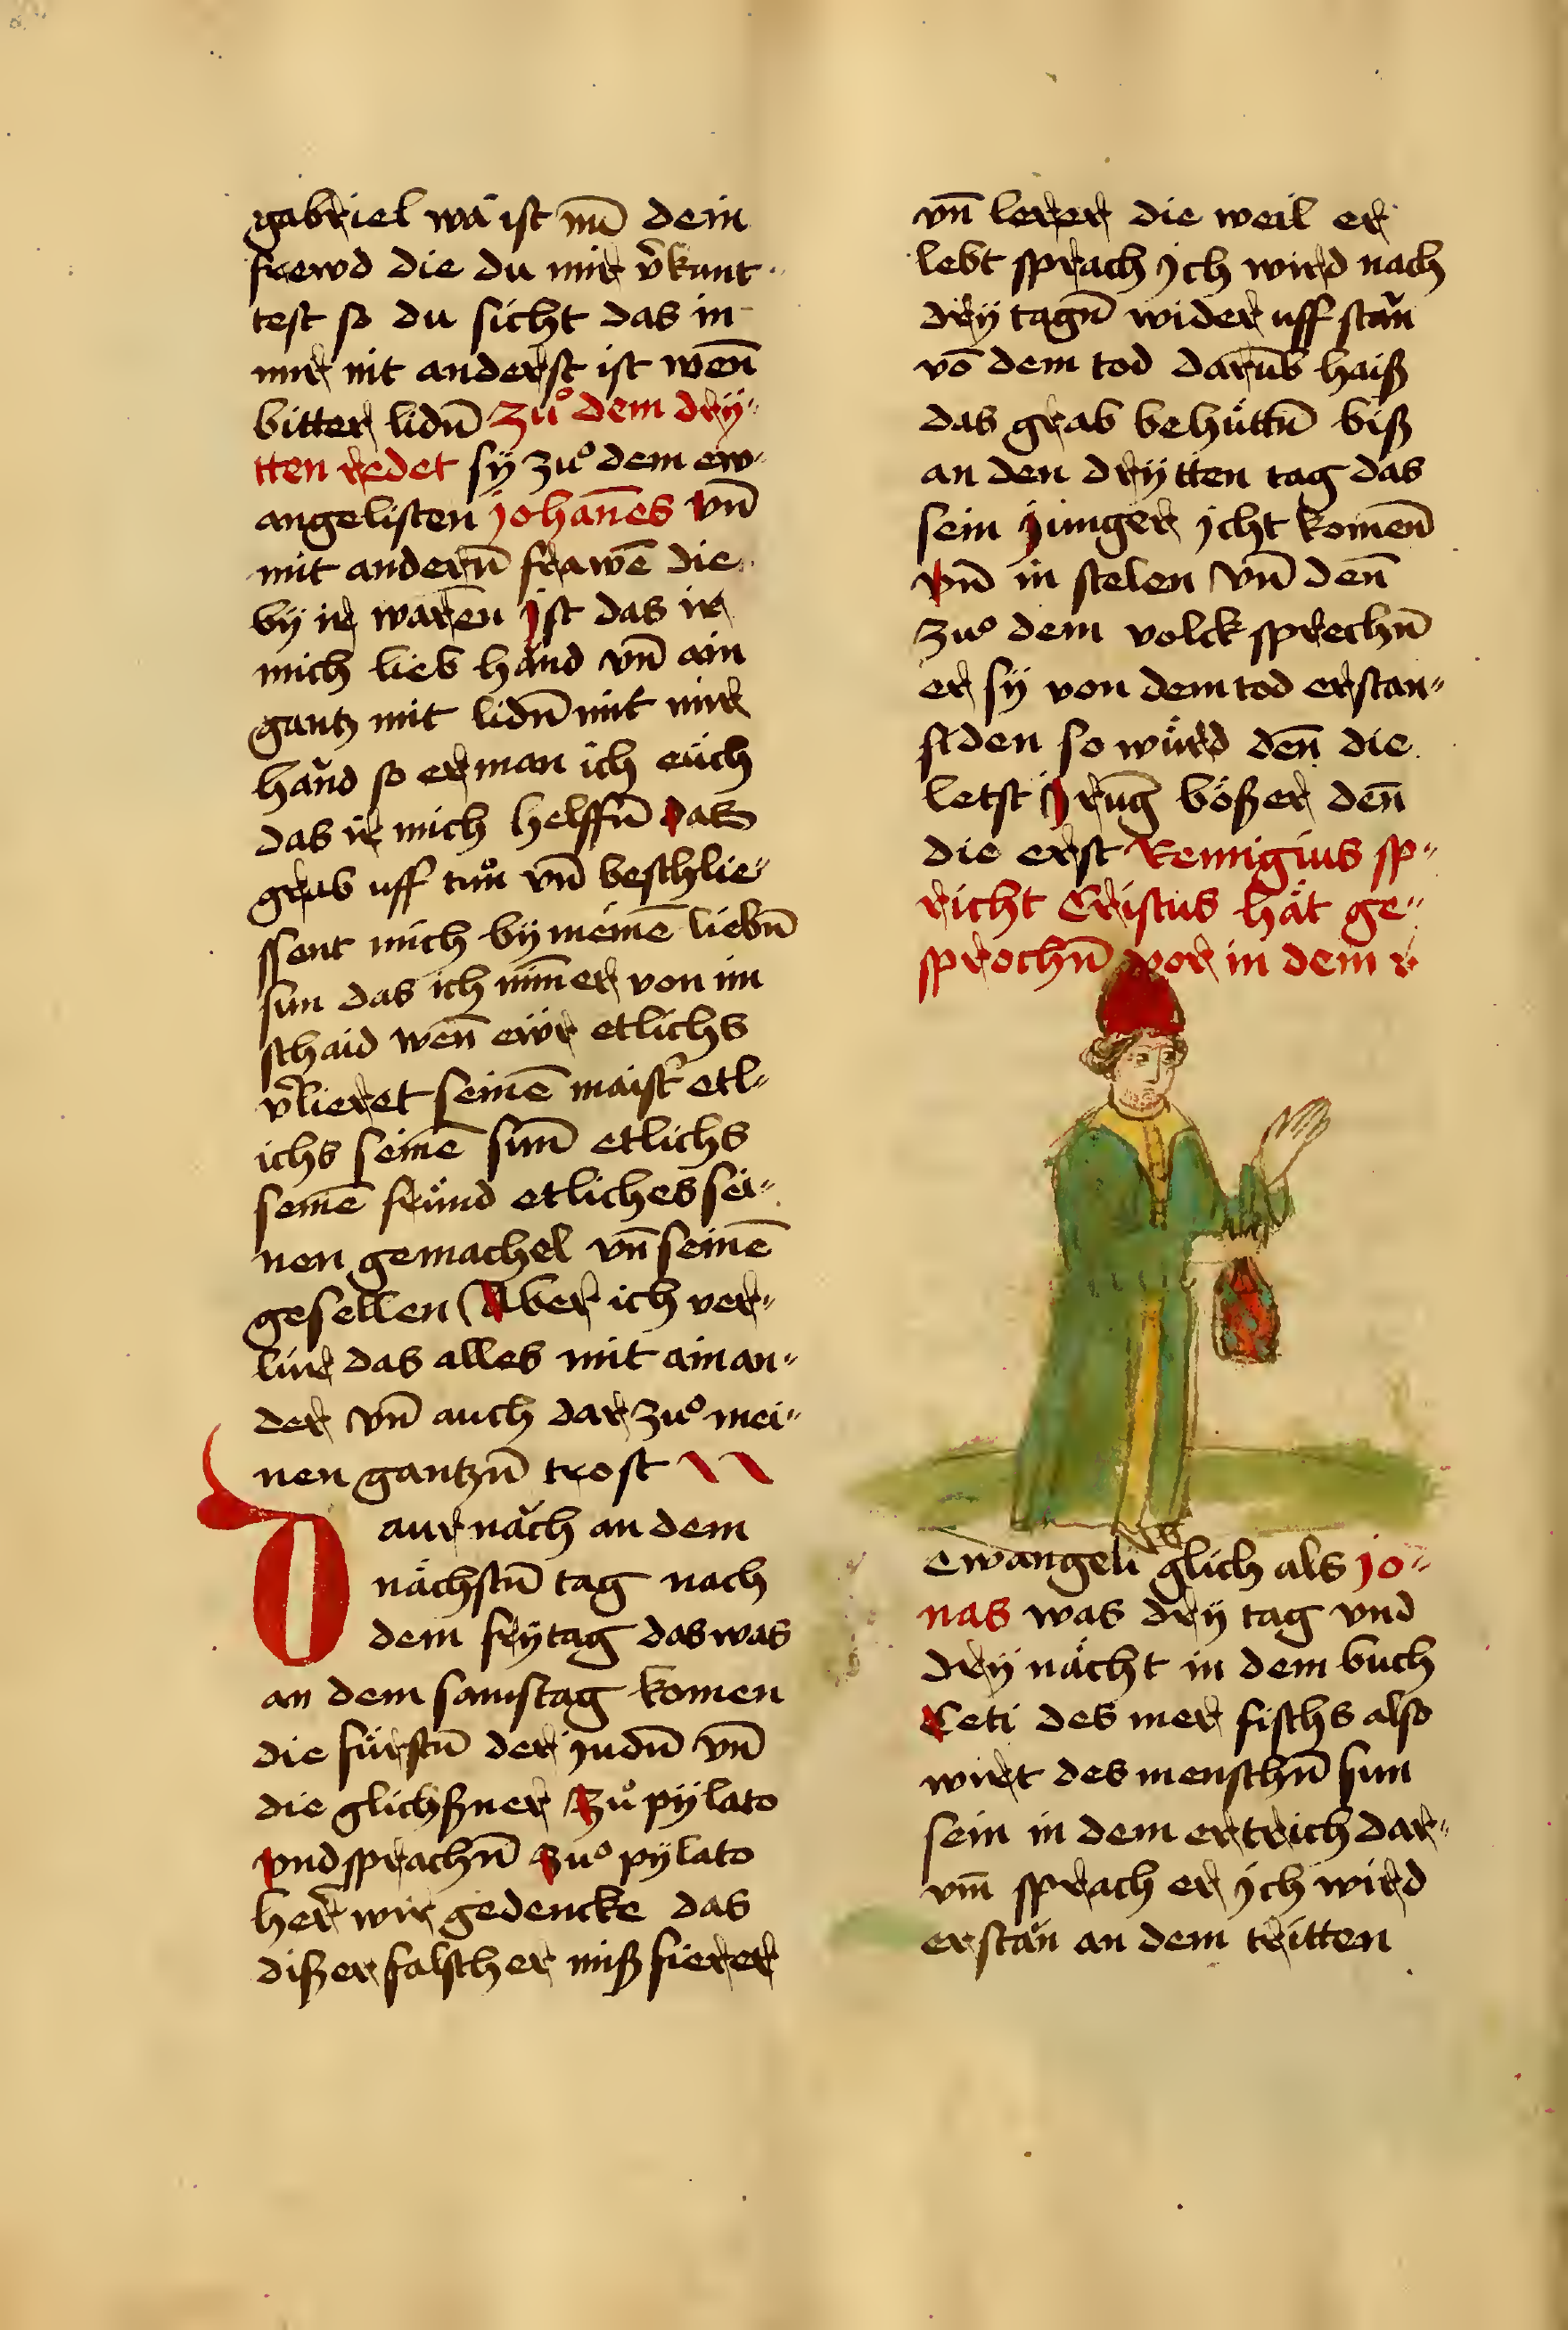 gabriel wa ist nū dein
frewd die du mir v̄kant
test so du sicht das in
mir nit anderst ist wen̄
bitter lidn̄ zuͦ dem dry
tten redet sÿ zuͦ dem ew
angelisten johan̄es vn̄
mit andern̄ frawē die
bÿ ir waren̄ jst das ir
mich lieb hănd vn̄ ain
gantz mit lidn̄ mit mir
hănd so erman ich eüch
das ir mich helffn̄ das
grab uff tuͦn vn̄ beschlie„
ssent mich bÿ meinē liebn̄
sun das ich nim̄er von im
schaid wen̄ eẅr etlichs
v̄lieret seinē maist̄ etl„
ichs seinē sun̄ etlichs
seinē freünd etliches sei„
nen gemachel vn̄ seinē
gesellen Aber ich ver„
lür das alles mit ainan„
der vn̄ auch dar zuͦ mei„
nen gantzn̄ trost
Daur năch an dem
nächstn̄ tag nach
dem frÿtag das was
an dem samstag komen
die fürstn̄ der judn̄ vn̄
die glichßner Zuͦ pÿlato
vnd sprachn̄ zuͦ pÿlato
her̄ wir gedencke das
dißer falscher miß fierer
vn̄ lerer die weil er
lebt sprach jch wird nach
drÿ tagn̄ wider uff stăn
vō dem tod darūb haiß
das grab behüttn̄ biß
an den drÿtten tag das
sein junger jcht komen̄
vn̄ in stelen vn̄ den̄
zuͦ dem volck sprechn̄
er sÿ von dem tod erstan„
den so würd den̄ die
letst jrūg bößer den̄
die erst Remigius sp„
richt Cristus hăt ge„
sprochn̄ vor in dem
ewangeli glich als jo„
nas was drÿ tag vnd
drÿ nächt in dem buch
Ceti des mer fischs also
wirt des menschn̄ sun
sein in dem ertrich dar„
vm̄ sprach er jch wird
erstăn an dem tritten